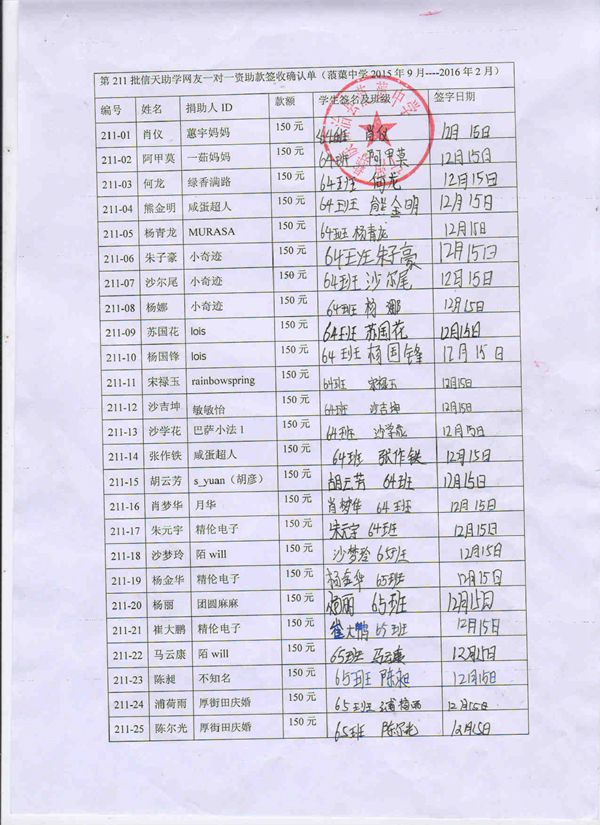 第 211 批信天助学网友一对一资助款签收确认单（蒗蕖中学 2015 年 9 月----2016 年 2 月）
编号 姓名 捐助人 ID 款额 学生签名及班级 签字日期
211-01 肖仪 蕙宇妈妈 150 元 64班 肖仪 12月15日
211-02 阿甲莫 一茹妈妈 150 元 64班 阿甲莫 12月15日
211-03 何龙 绿香满路 150 元 64班 何龙 12月15日
211-04 熊金明 咸蛋超人 150 元 64班 熊金明 12月15日
211-05 杨青龙 MURASA 150 元 64班 杨青龙 12月15日
211-06 朱子豪 小奇迹 150 元 64班 朱子豪 12月15日
211-07 沙尔尾 小奇迹 150 元 64班 沙尔尾 12月15日
211-08 杨娜 小奇迹 150 元 64班 杨娜 12月15日
211-09 苏国花 lois 150 元 64班 苏国花 12月15日
211-10 杨国锋 lois 150 元 64班 杨国锋 12月15日
211-11 宋禄玉 rainbowspring 150 元 64班 宋禄玉 12月15日
211-12 沙吉坤 敏敏怡 150 元 64班 沙吉坤 12月15日
211-13 沙学花 巴萨小法 1 150 元 64班 沙学花 12月15日
211-14 张作铁 咸蛋超人 150 元 64班 张作铁 12月15日
211-15 胡云芳 s_yuan（胡彦） 150 元 胡云芳 64班 12月15日
211-16 肖梦华 月华 150 元 肖梦华 64班 12月15日
211-17 朱元宇 精伦电子 150 元 朱元宇 64班 12月15日
211-18 沙梦玲 陌 will 150 元 沙梦玲 65班 12月15日
211-19 杨金华 精伦电子 150 元 杨金华 65班 12月15日
211-20 杨丽 团圆麻麻 150 元 杨丽 65班 12月15日
211-21 崔大鹏 精伦电子 150 元 崔大鹏 65班 12月15日
211-22 马云康 陌 will 150 元 65班 马云康 12月15日
211-23 陈昶 不知名 150 元 65班 陈昶 12月15日
211-24 浦荷雨 厚街田庆婚 150 元 65班 12月15日
211-25 陈尔光 厚街田庆婚 150 元 65班 陈尔光 12月15日